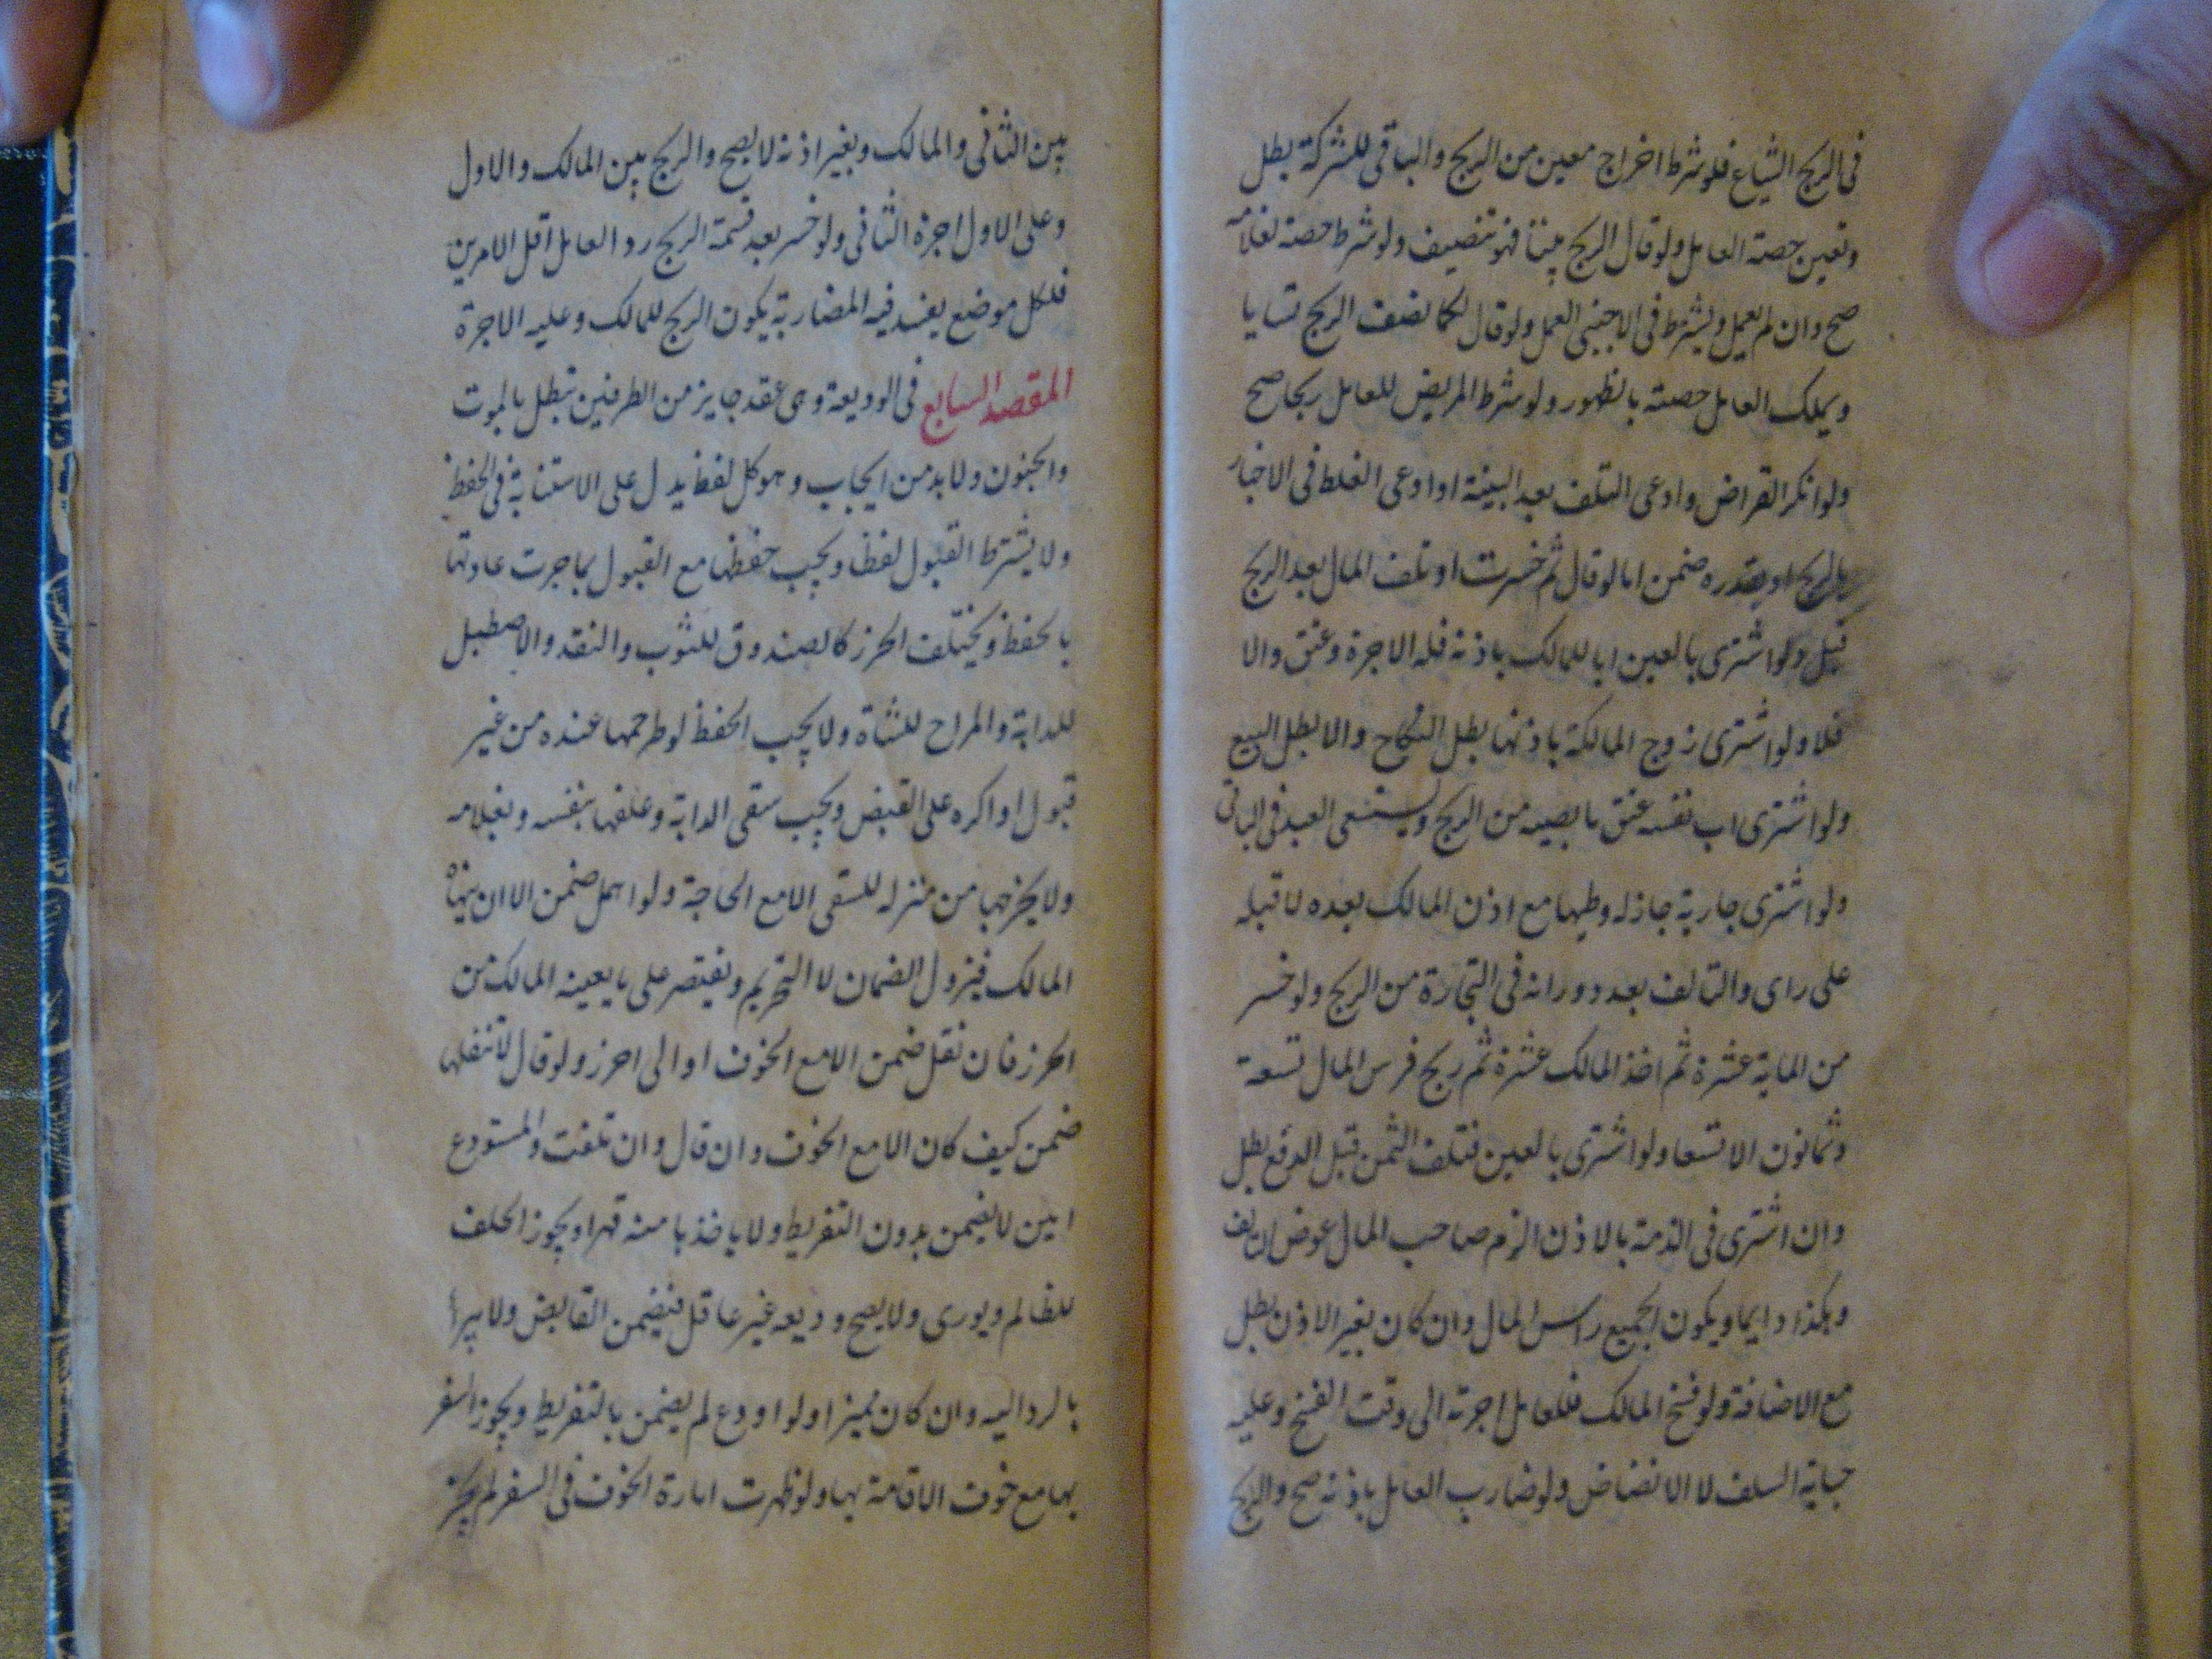 فى الربح الشياع فلو شرط اخراج معين من الربح والباقى للشركة بطل
وتعين حصة العامل ولو قال الربح بيننا فهو تنصيف ولو شرط حصة لغلامه
صح وان لم يعمل ويشترط فى الاجنبى العمل ولو قال لكما نصف الربح تساويا
ويملك العامل حصته بالظهور ولو شرط المريض للعامل ربحا صح
ولو انكر القراض وادعى التلف بعد البينة او ادعى الغلط فى الاخبار
بالربح او بقدره ضمن اما لو قال ثم خسرت او تلف المال بعد الربح
قبل ولو اشترى بالعين ابا للمالك باذنه فله الاجرة وعتق والا
فلا ولو اشترى زوج المالكة باذنها بطل النكاح والا بطل البيع
ولو اشترى اب نفسه عتق ما يصيبه من الربح ويستسعى العبد فى الباقى
ولو اشترى جارية جاز له وطيها مع اذن المالك بعده لا قبله
على راى والتالف بعد دورانه فى التجارة من الربح ولو خسر
من الماية عشرة ثم اخذ المالك عشرة ثم ربح فرس المال تسعة
وثمانون الا تسعا ولو اشترى بالعين فتلف الثمن قبل الدفع بطل
وان اشترى فى الذمة بالاذن الزم صاحب المال عوض التالف
وهكذا دايما ويكون الجميع راس المال وان كان بغير الاذن بطل
مع الاضافة ولو فسخ المالك فللعامل اجرته الى وقت الفسخ وعليه
جباية السلف لا الانضاض ولو ضارب العامل باذنه صح والربح
بين الثانى والمالك وبغير اذنه لا يصح والربح بين المالك والاول
وعلى الاول اجرة الثانى ولو خسر بعد قسمة الربح رد العامل اقل الامرين
فلكل موضع يفسد فيه المضاربة يكون الربح للمالك وعليه الاجرة
المقصد السابع فى الوديعة وهى عقد جايز من الطرفين تبطل بالموت
والجنون ولا بد من ايجاب وهو كل لفظ يدل على الاستنابة فى الحفظ
ولا يشترط القبول لفظا ويجب حفظها مع القبول بما جرت عادتها
بالحفظ ويختلف الحرز كالصندوق للثوب والنقد والاصطبل
للدابة والمراح للشاة ولا يجب الحفظ لو طرحها عنده من غير
قبول او اكره على القبض ويجب سقى الدابة وعلفها بنفسه وبغلامه
ولا يخرجها من منزله للسقى الا مع الحاجة ولو اهمل ضمن الا ان ينهاه
المالك فيزول الضمان لا التحريم ويقتصر على ما يعينه المالك من
الحرز فان نقل ضمن الا مع الخوف او الى احرز ولو قال لا تنقلها
ضمن كيف كان الا مع الخوف وان قال وان تلفت والمستودع
امين لا يضمن بدون التفريط ولا ياخذها منه قهرا ويجوز الحلف
للظالم ويورى ولا يصح وديعه غير عاقل فيضمن القابض ولا يبرأ
بالرد اليه وان كان مميزا ولو اودع لم يضمن بالتفريط ويجوز السفر
بها مع خوف الاقامة بها ولو ظهرت امارة الخوف فى السفر لم يجز